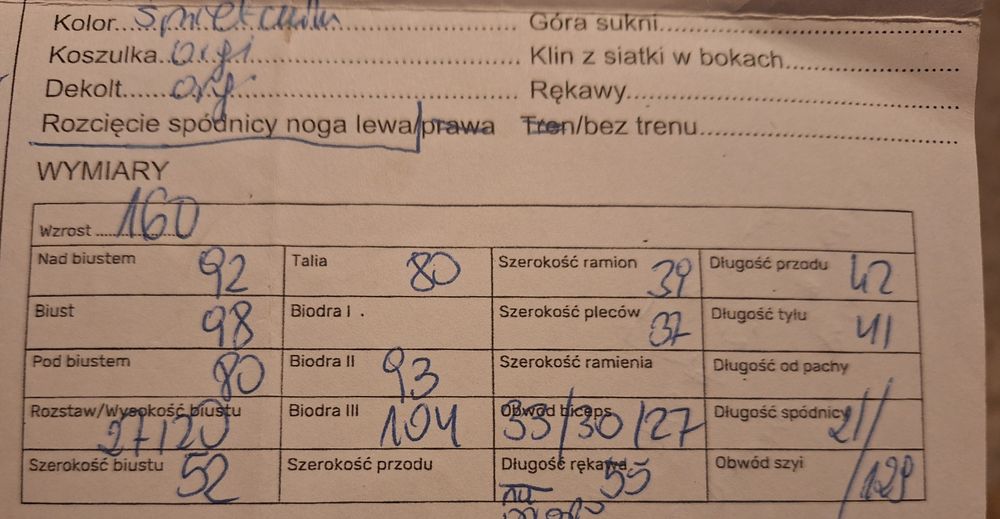 Kolor.......... Góra sukni..........
Koszulka orgi.......... Klin z siatki w bokach..........
Dekolt org.......... Rękawy..........
Rozcięcie spódnicy noga lewa/prawa Tren/bez trenu..........
WYMIARY
Wzrost ..... 160
Nad biustem 92 Talia 80 Szerokość ramion 39 Długość przodu 42
Biust 98 Biodra I . Szerokość pleców 37 Długość tyłu 41
Pod biustem 80 Biodra II 93 Szerokość ramienia Długość od pachy
Rozstaw/Wysokość biustu 27/20 Biodra III 104 Obwód biceps 33/30/27 Długość spódnicy 21/
Szerokość biustu 52 Szerokość przodu Długość rękawa 55 Obwód szyi /129
na